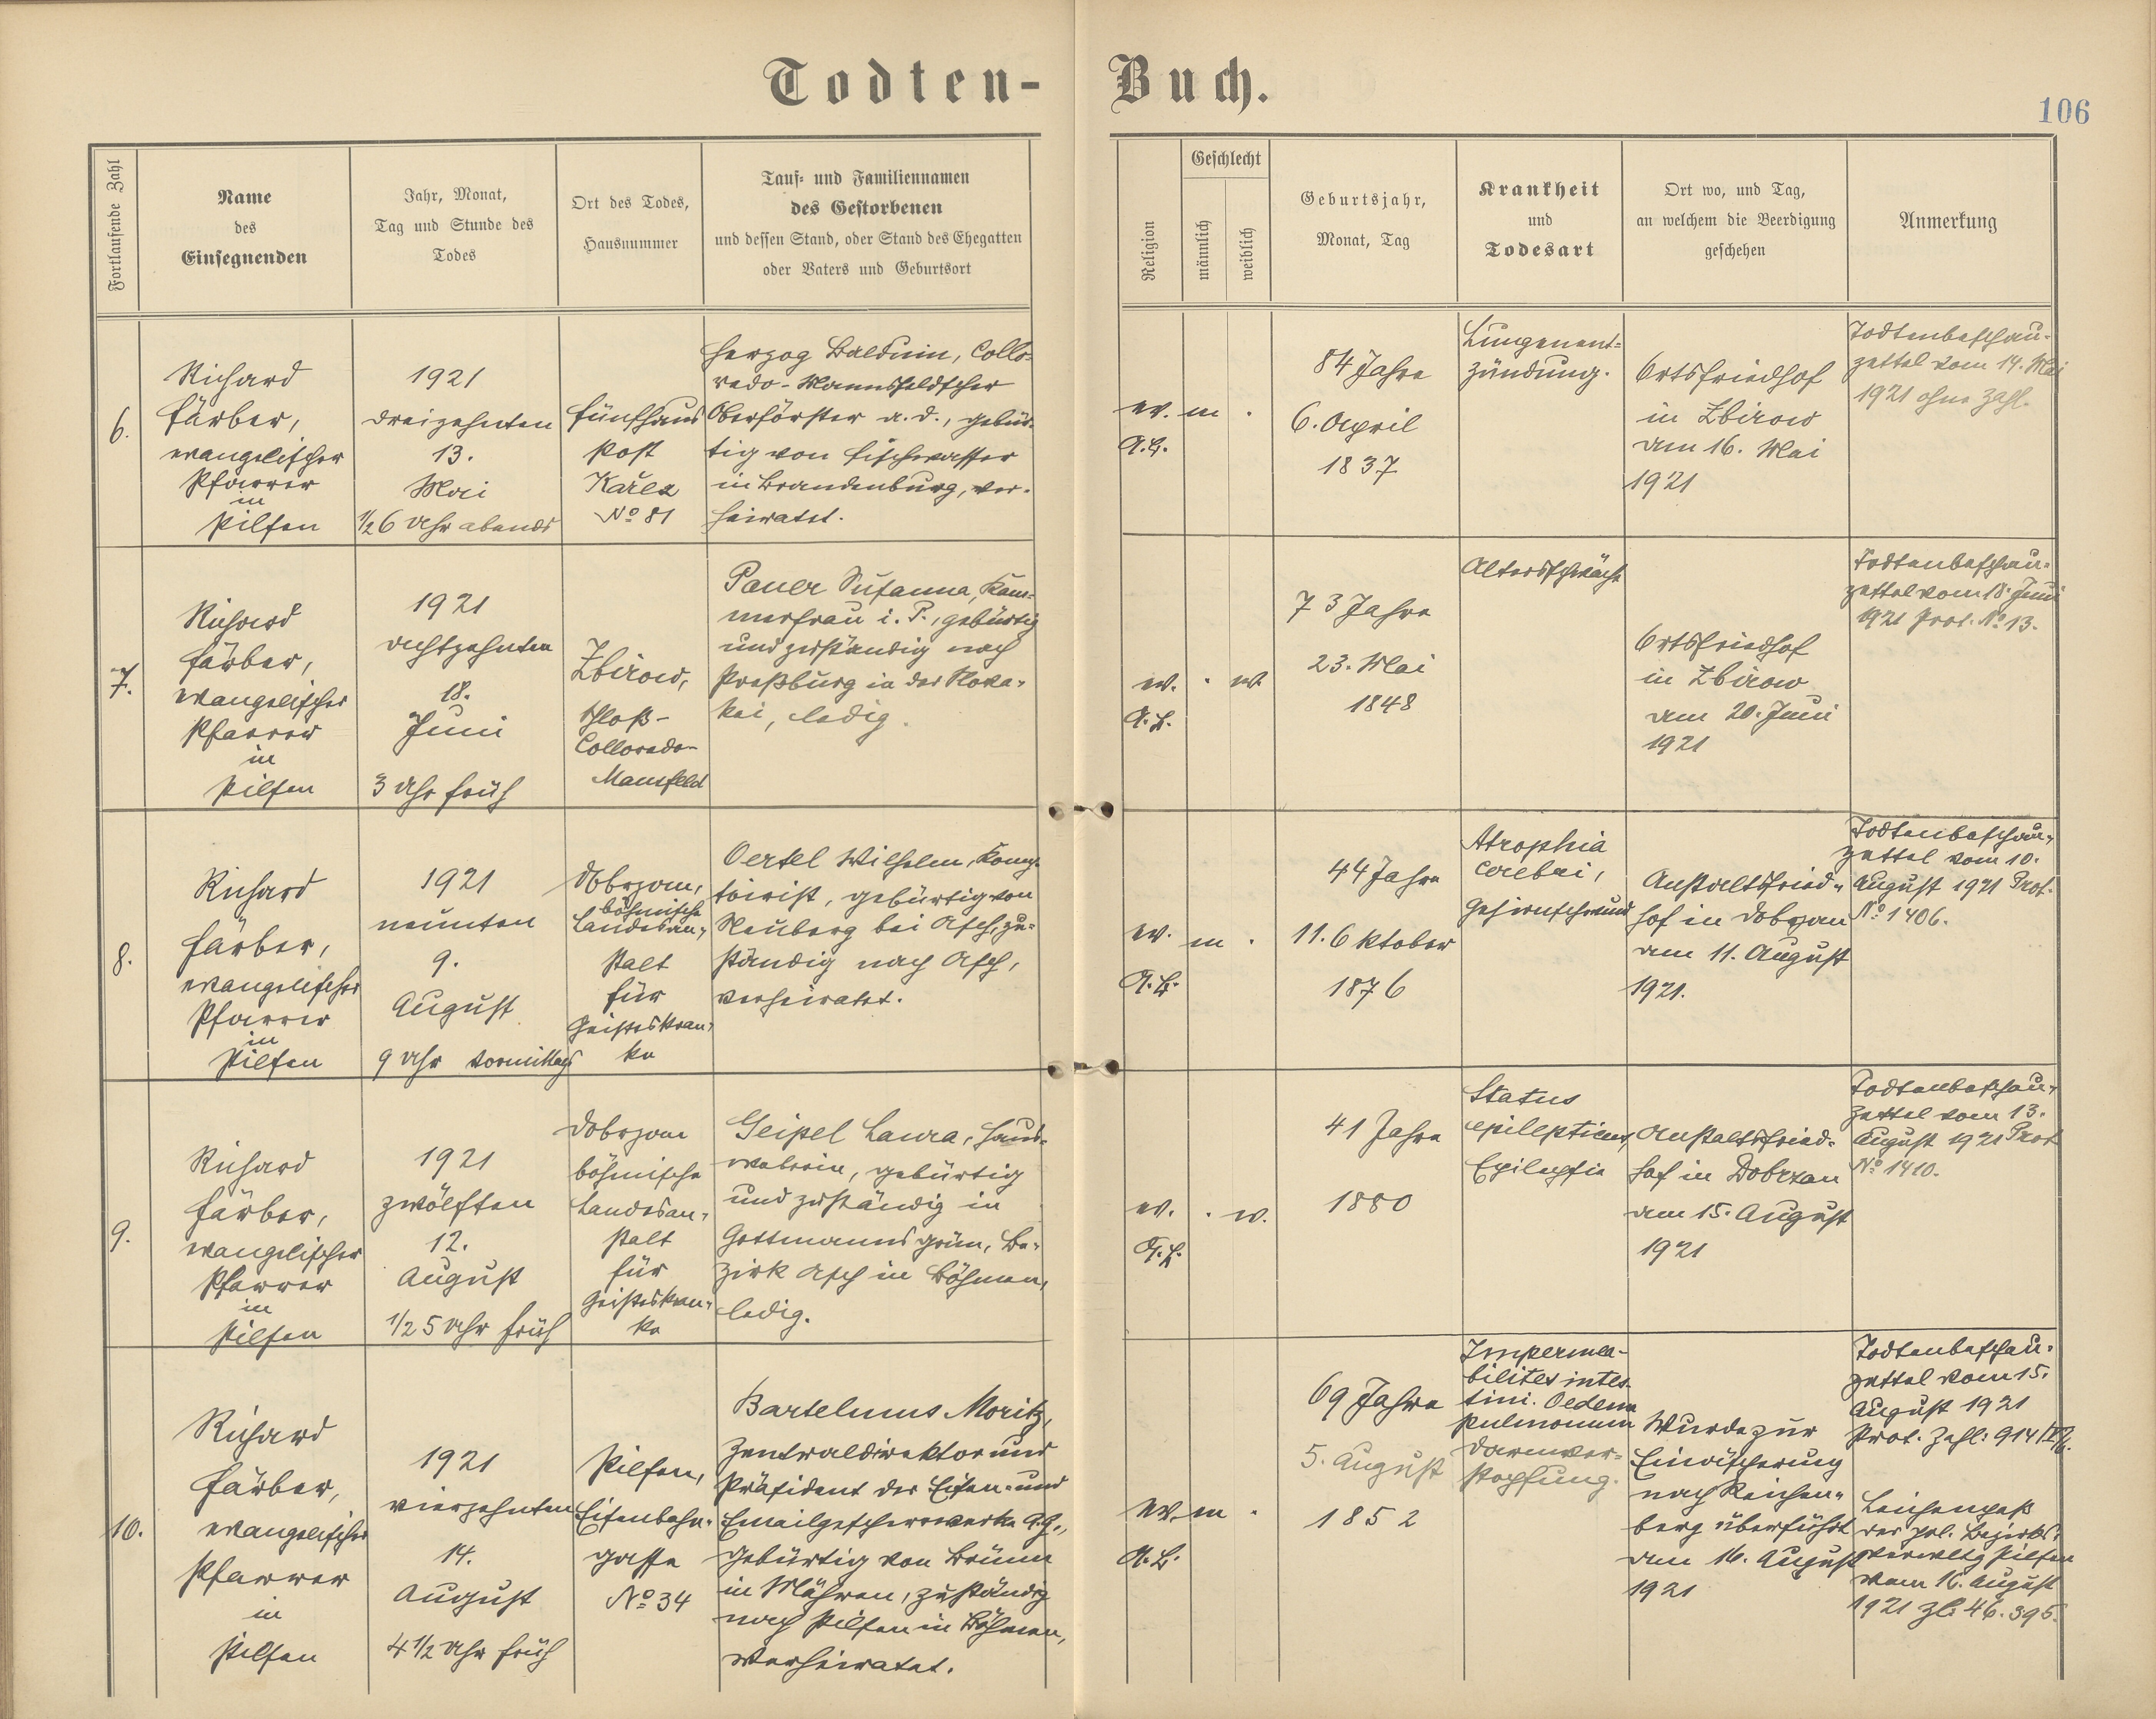 Todten-Buch.
106
Fortlaufende Zahl
Name
des
Einsegnenden
Jahr, Monat,
Tag und Stunde des
Todes
Ort des Todes,
Hausnummer
Tauf- und Familiennamen
des Gestorbenen
und dessen Stand, oder Stand des Ehegatten
oder Vaters und Geburtsort
Religion
Geschlecht
männlich
weiblich
Geburtsjahr,
Monat, Tag
Krankheit
und
Todesart
Ort wo, und Tag,
an welchem die Beerdigung
geschehen
Anmerkung
6.
Richard
Färber,
evangelischer
Pfarrer
in
Pilsen
1921
dreizehnten
13.
Mai
1/2 6 Uhr abends
Fünfhaus
Post
Kařez
No 81
Herzog Balduin, Collo-
redo-Mannsfeldscher
Oberförster a. d., gebür-
tig von Fischwasser
in Brandenburg, ver-
heiratet.
ev.
A.B.
m
84 Jahre
6. April
1837
Lungenent-
zündung.
Ortsfriedhof
in Zbirow
am 16. Mai
1921
Todtenbeschau-
zettel vom 14. Mai
1921 ohne Zahl.
7.
Richard
Färber,
evangelischer
Pfarrer
in
Pilsen
1921
achtzehnten
18.
Juni
3 Uhr früh
Zbirow,
Schloß-
Colloredo-
Mansfeld
Pauer Susanna, Kam-
merfrau i. P., gebürtig
und zuständig nach
Preßburg in der Slova-
kei, ledig.
ev.
A.B.
w.
73 Jahre
23. Mai
1848
Altersschwäche
Ortsfriedhof
in Zbirow
am 20. Juni
1921
Todtenbeschau-
zettel vom 18. Juni
1921 Prot. No 13.
8.
Richard
Färber,
evangelischer
Pfarrer
in
Pilsen
1921
neunten
9.
August
9 Uhr vormittags
Dobrzan,
böhmische
Landesan-
stalt
für
Geisteskran-
ke
Oertel Wilhelm, Komp-
toirist, gebürtig von
Neuberg bei Asch, zu-
ständig nach Asch,
verheiratet.
ev.
A.B.
m
44 Jahre
11. Oktober
1876
Atrophia
cerebri,
Gehirnschwund
Anstaltsfried-
hof in Dobrzan
am 11. August
1921.
Todtenbeschau-
zettel vom 10.
August 1921 Prot.
No 1406.
9.
Richard
Färber,
evangelischer
Pfarrer
in
Pilsen
1921
zwölften
12.
August
1/2 5 Uhr früh
Dobrzan
böhmische
Landesan-
stalt
für
Geisteskran-
ke
Geipel Laura, Haus-
weberin, gebürtig
und zuständig in
Gottmannsgrün, Be-
zirk Asch in Böhmen,
ledig.
ev.
A.B.
w.
41 Jahre
1880
Status
epilepticus,
Epilepsie
Anstaltsfried-
hof in Dobrzan
am 15. August
1921
Todtenbeschau-
zettel vom 13.
August 1921 Prot
No 1410.
10.
Richard
Färber,
evangelischer
Pfarrer
in
Pilsen
1921
vierzehnten
14.
August
4 1/2 Uhr früh
Pilsen,
Eisenbahn-
gasse
No 34
Bartelmus Moritz,
Zentraldirektor und
Präsident der Eisen- und
Emailgeschirrwerke A.G.,
gebürtig von Brünn
in Mähren, zuständig
nach Pilsen in Böhmen,
verheiratet.
ev.
A.B.
m
69 Jahre
5. August
1852
Impermea-
bilites intes-
tini. Oedema
pulmonum
Darmver-
stopfung.
Wurde zur
Einäscherung
nach Reichen-
berg überführt
am 16. August
1921
Todtenbeschau-
zettel vom 15.
August 1921
Prot. Zahl: 914
Leichenpaß
der pol. Bezirks-
verwltg Pilsen
vom 16. August
1921 Zl: 46.395.